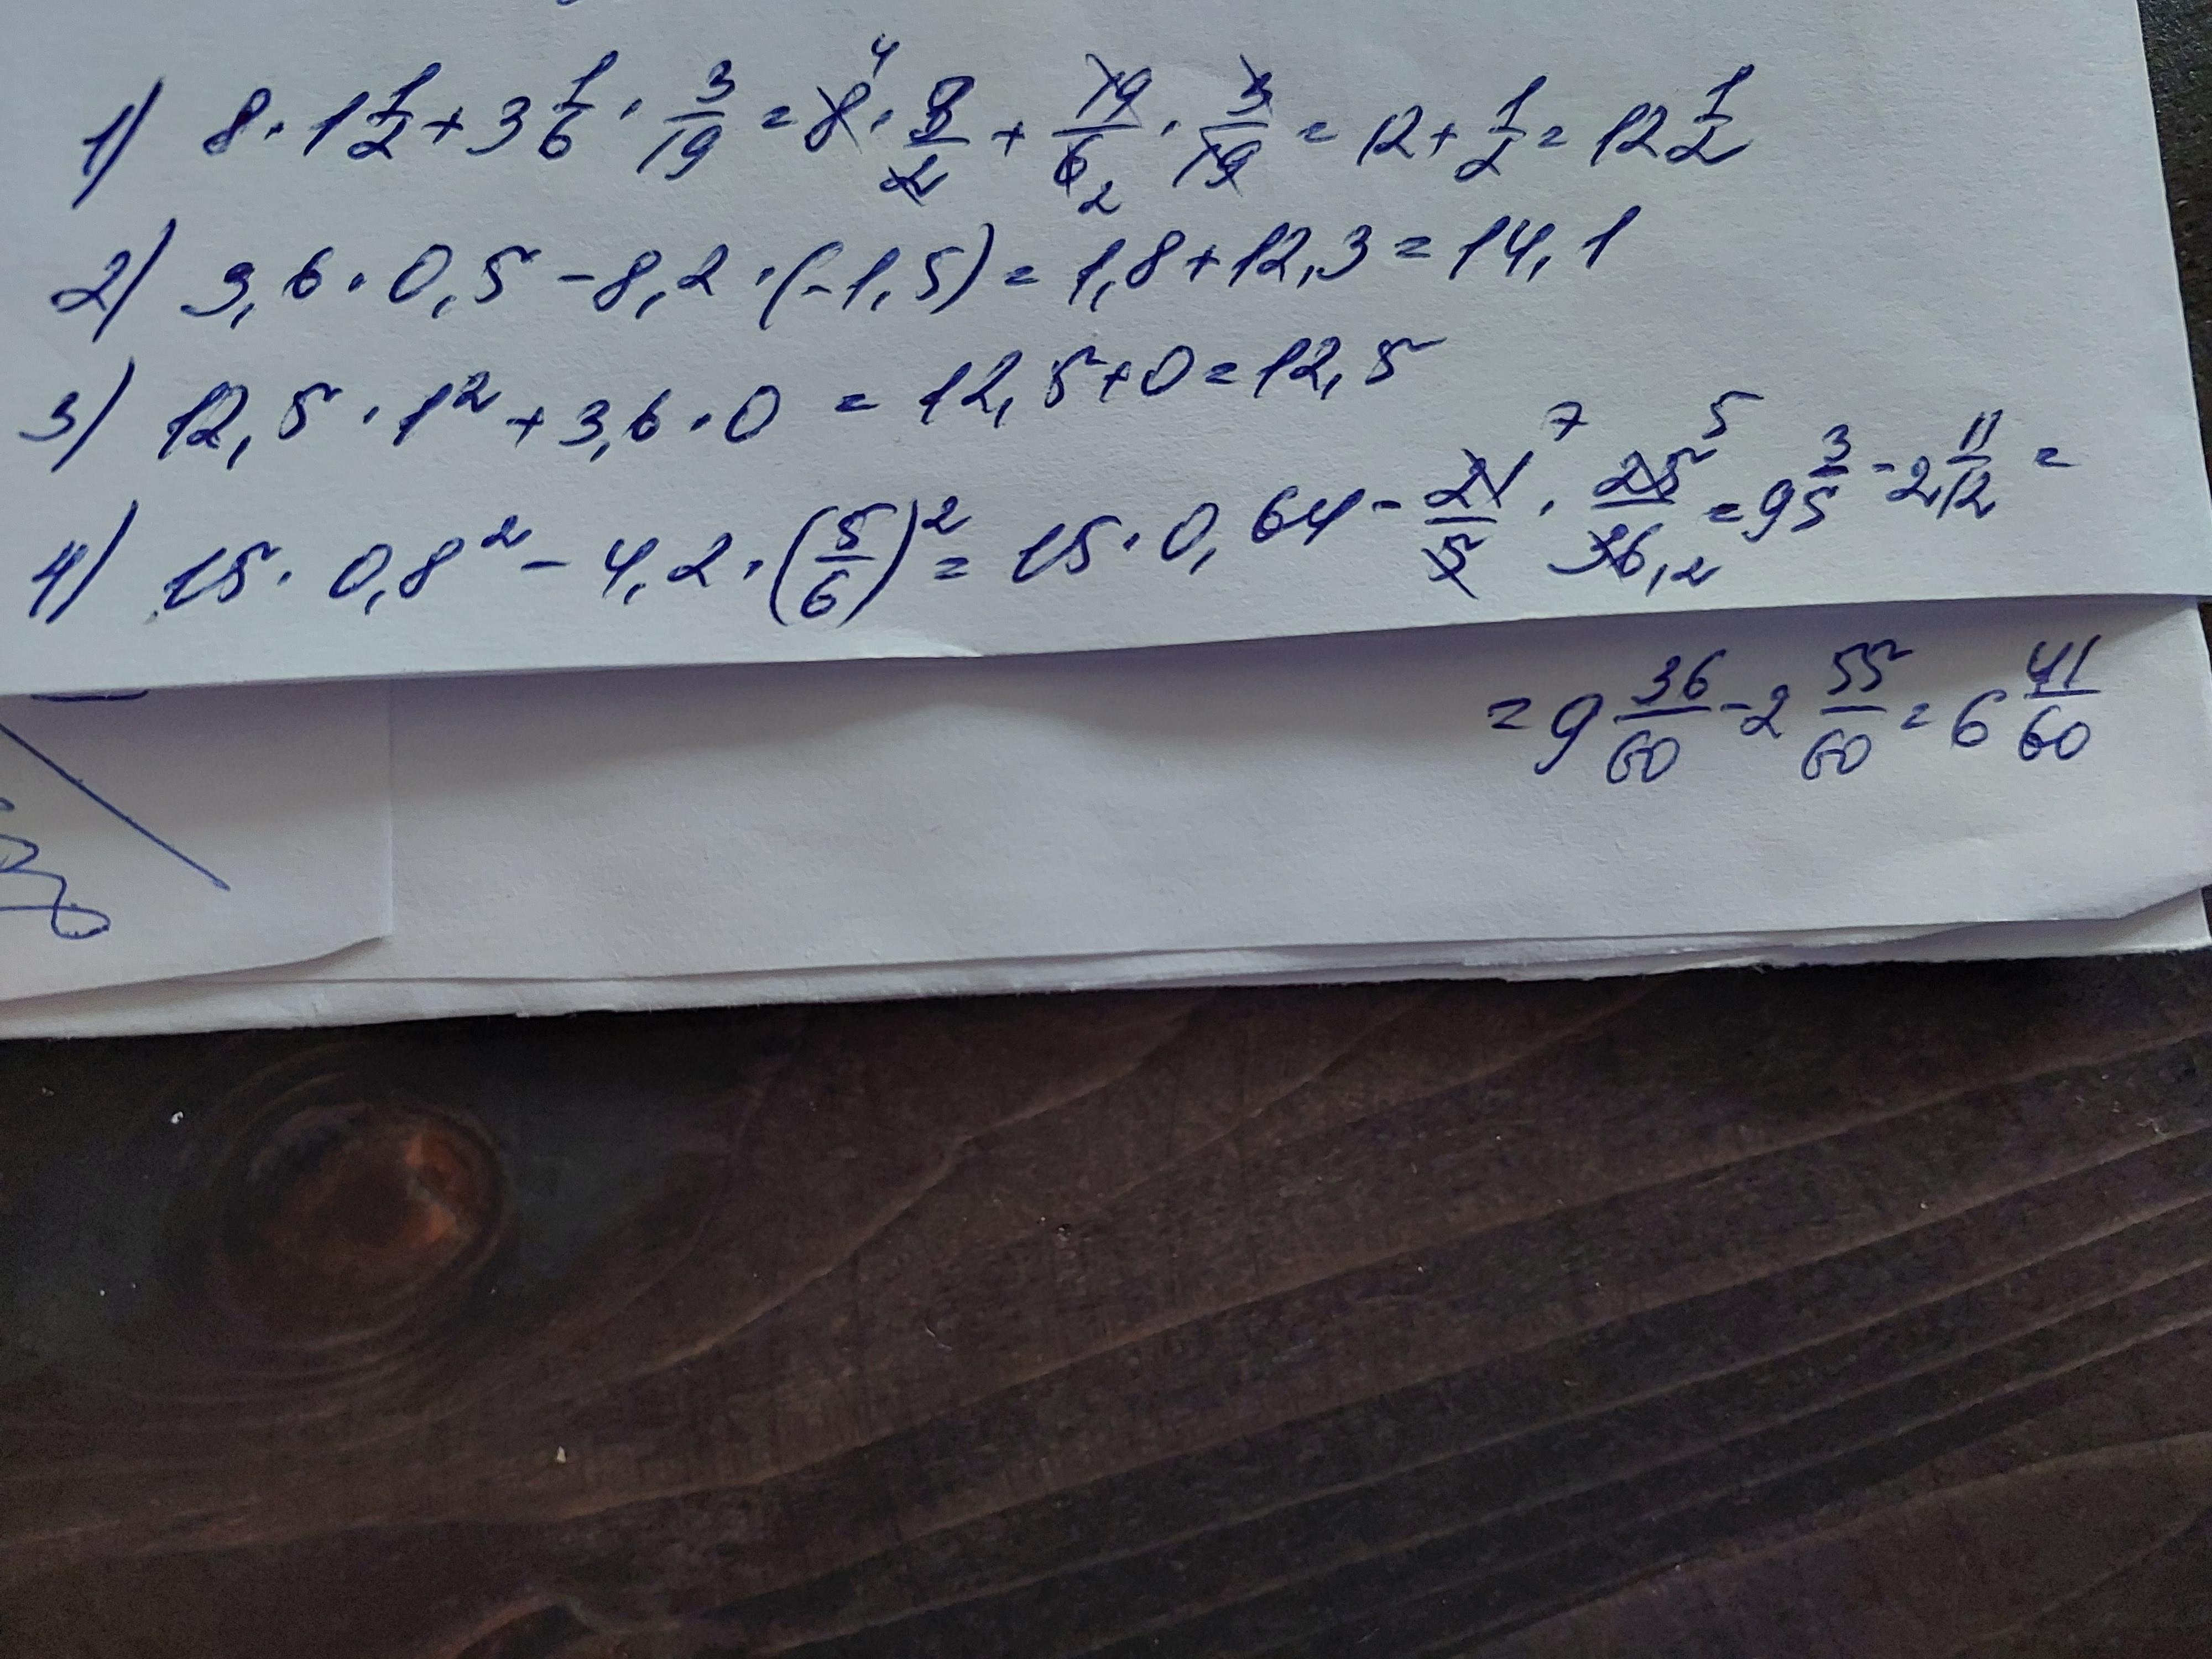 1) 8 · 1 1/2 + 3 1/6 · 3/19 = 8 4 · 3/2 + 19/6 2 · 3/19 = 12 + 1/2 = 12 1/2
2) 3,6 · 0,5 - 8,2 · (-1,5) = 1,8 + 12,3 = 14,1
3) 12,5 · 1² + 3,6 · 0 = 12,5 + 0 = 12,5
4) 15 · 0,8² - 4,2 · (5/6)² = 15 · 0,64 - 21 7/5 · 25 5/36 12 = 9 3/5 - 2 11/12 =
= 9 36/60 - 2 55/60 = 6 41/60